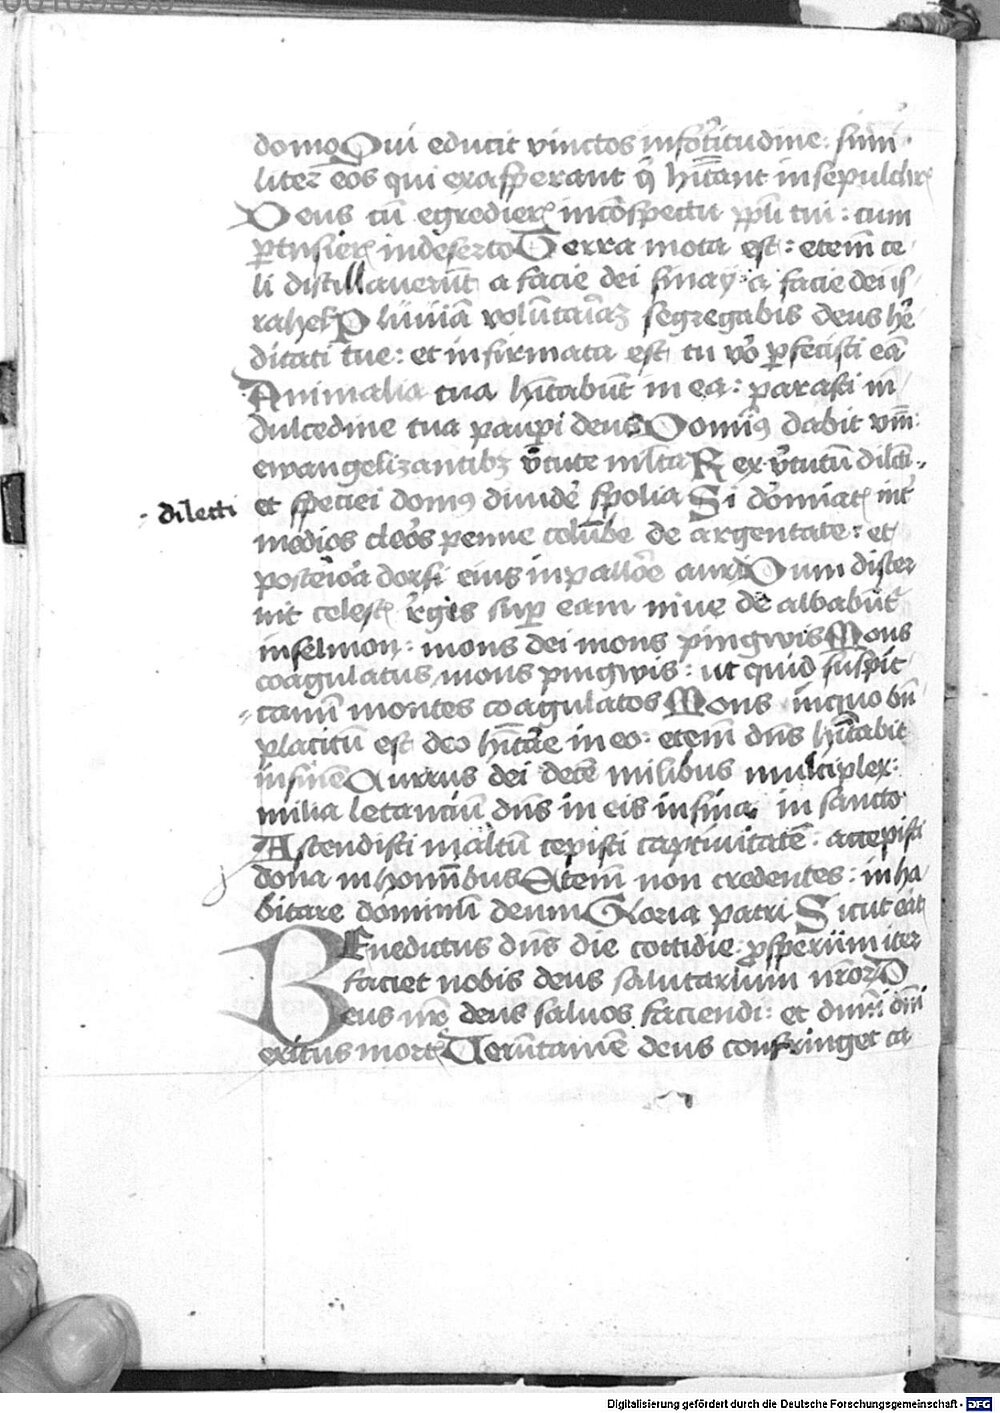 domo Qui educit vinctos infortitudine: simi
literͬ eos qui exasperant qͥ hītant insepulchrꝭ
Deus cū egredierꝭ incōspectu ppli tui: cum
ꝑtrāsierꝭ indeserto Terra mota est: etem̄ ce
li distillauerūt a facie dei sinay: a facie dei is
rahel Pluuiā volūtariā segregabis deus he
ditati tue: et infirmata est tu vo ꝑfecisti eā
Animalia tua hītabūt in ea: parasti in
dulcedine tua paupi deus Domīꝰ dabit vm̄:
ewangelizantibꝫ v̄tute mlta Rex v̄tutū dilcti
dilecti
et speciei domꝰ diuidē spolia Si dormiatꝭ int̄
medios cleos penne columbe de argentate: et
posteriora dorsi eius inpallore auri Dum discer
nit celestꝭ reges suꝑ eam niue de albabūt
inselmon: mons dei mons pingwis Mons
coagulatus mons pingwis: ut quid suspic
tamī montes coagulatos Mons inquo bn̄
placitū est deo hītare in eo: etem̄ dn̄s hītabit
infinē Currus dei dece milibus multiplex:
milia letanciū dn̄s in eis insina in sancto
Ascendisti in altū cepisti captiuitatē: accepisti
dona in hominibus Etem̄ non credentes: inha
bitare dominū deum Gloria patri Sicut erat
Benedictus dn̄s die cottidie: ꝓsperum iter
faciet nobis deus salutarium nr̄oꝝ D
eus nr̄ deus saluos faciendi: et dn̄i dn̄i
exitus mortꝭ Verūtamē deus confringet ca
Digitalisierung gefördert durch die Deutsche Forschungsgemeinschaft - DFG